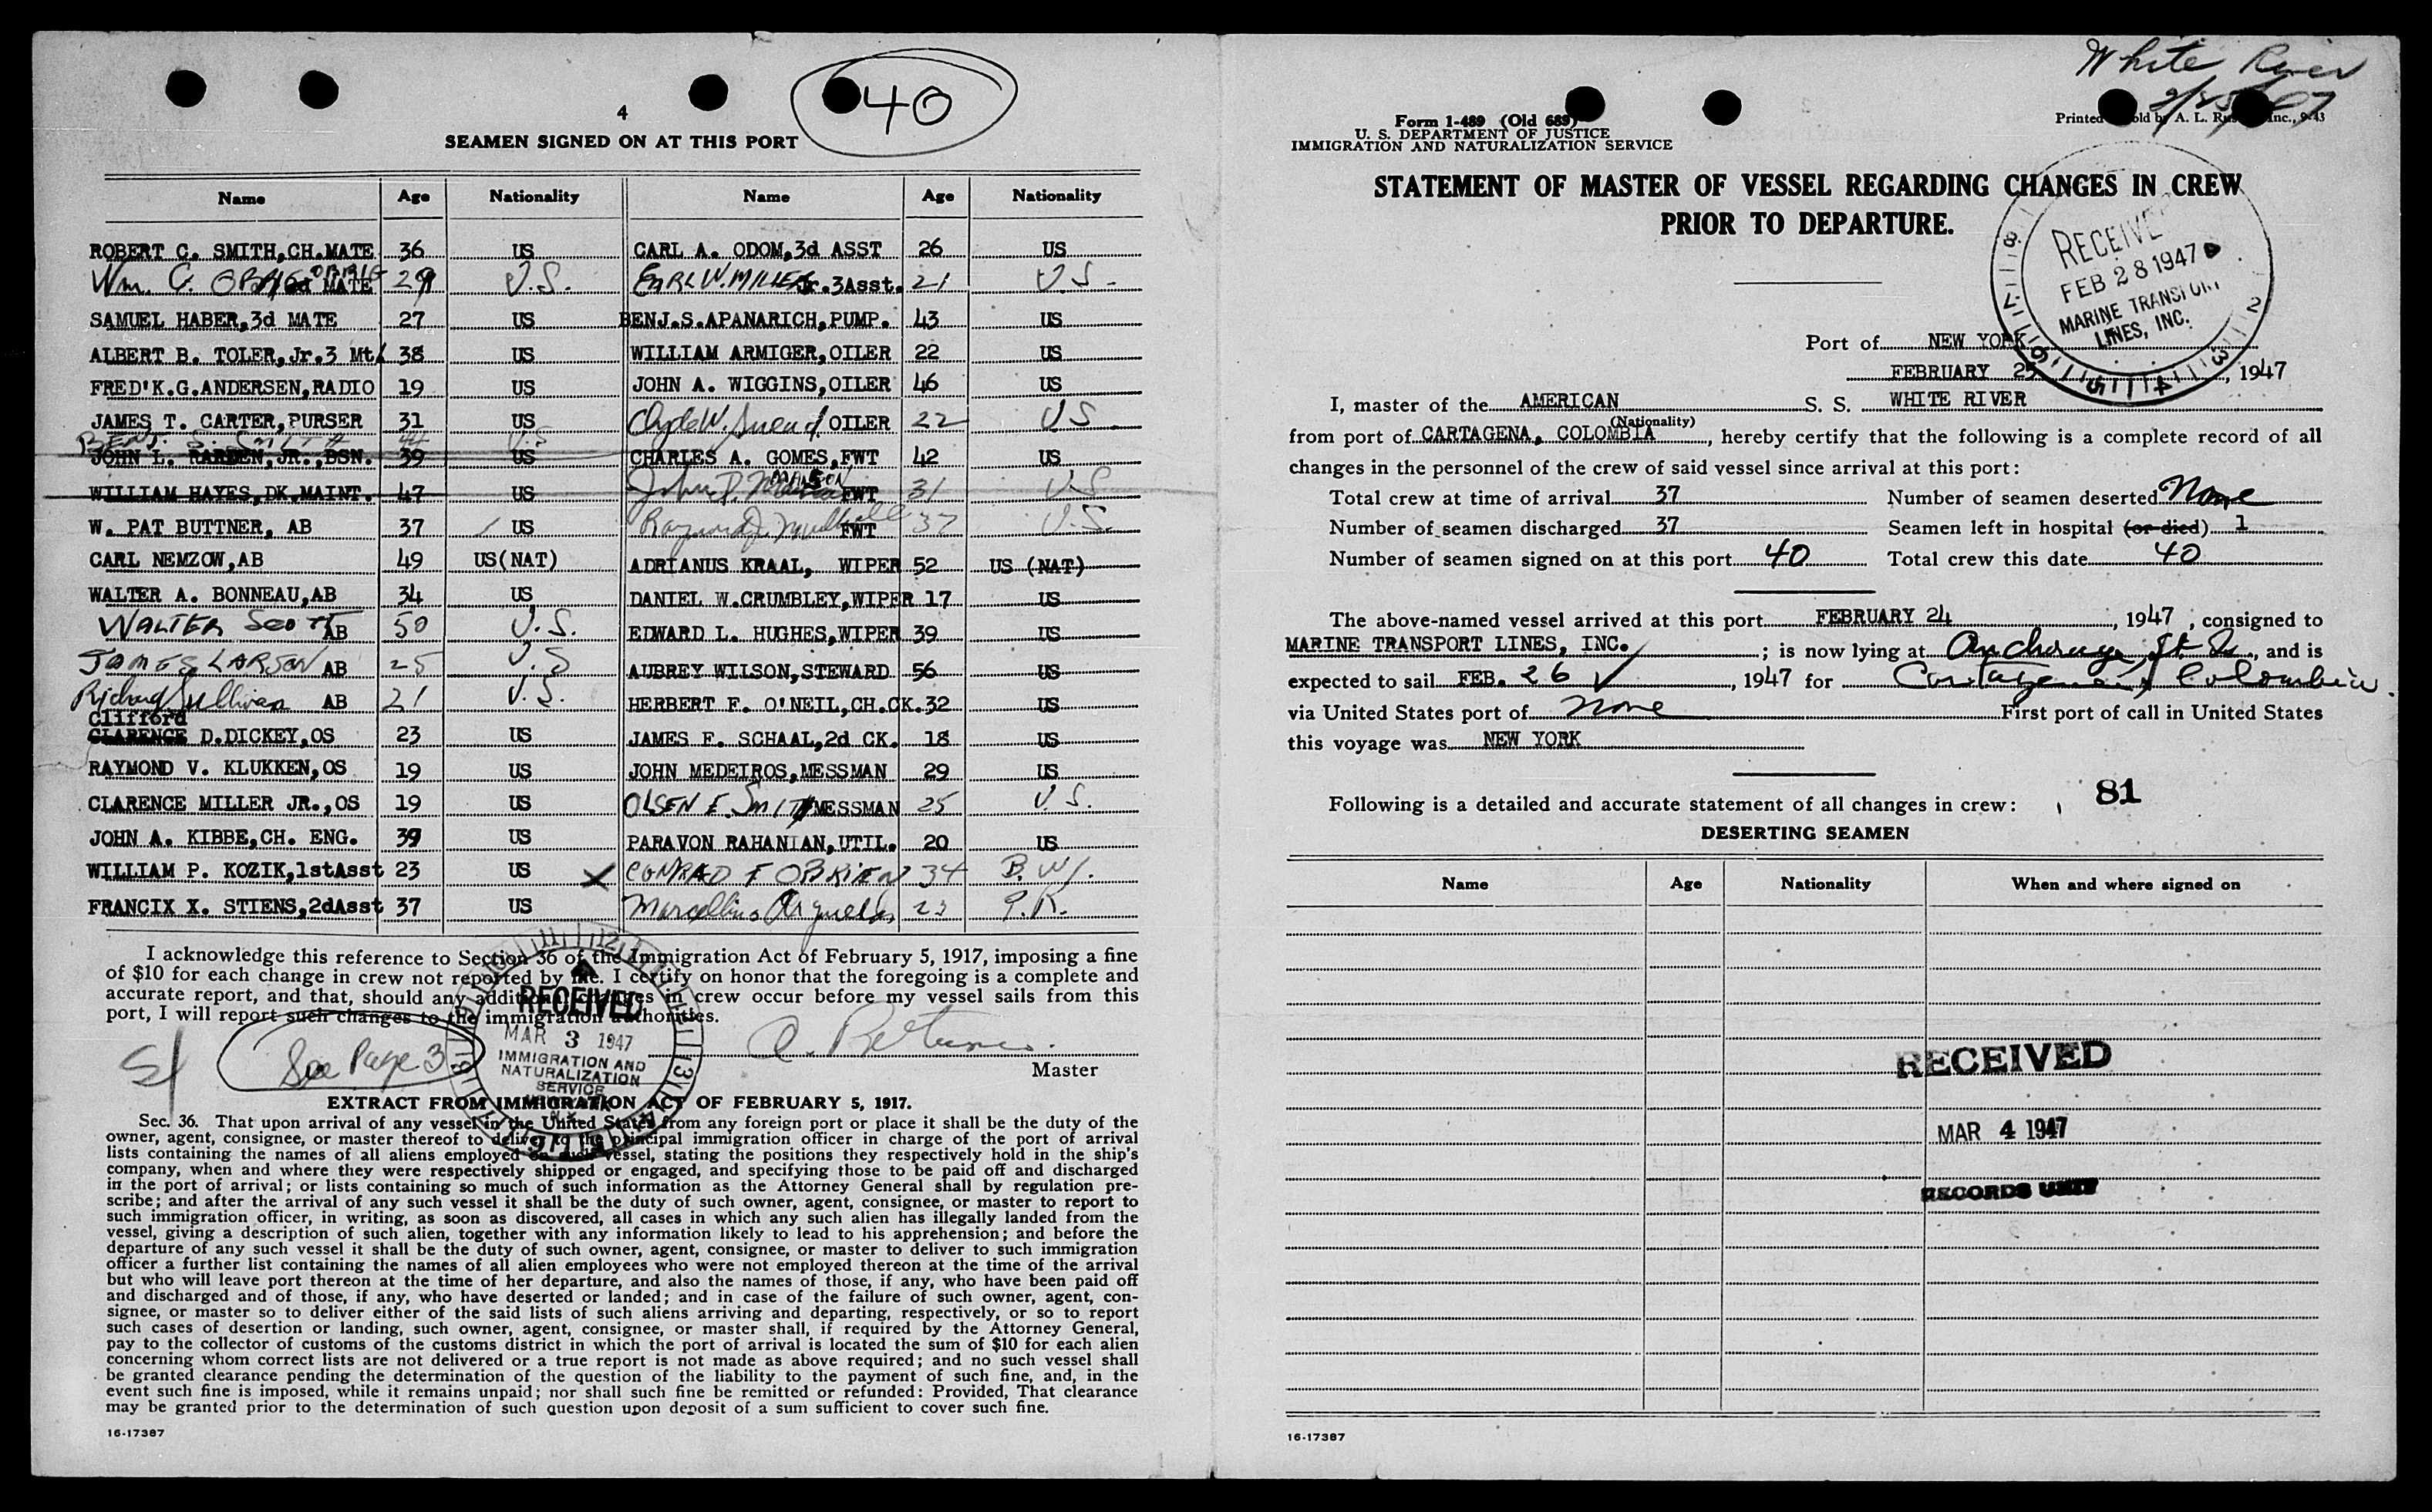 4
40
SEAMEN SIGNED ON AT THIS PORT
Name Age Nationality Name Age Nationality
ROBERT C. SMITH,CH.MATE 36 US CARL A. ODOM,3d ASST 26 US
Wm. C. MATE 29 U.S. EARL W. MILLER Jr.3Asst. 21 US.
SAMUEL HABER,3d MATE 27 US BENJ.S.APANARICH,PUMP. 43 US
ALBERT B. TOLER,Jr.3 Mt 38 US WILLIAM ARMIGER,OILER 22 US
FRED'K.G.ANDERSEN,RADIO 19 US JOHN A. WIGGINS,OILER 46 US
JAMES T. CARTER,PURSER 31 US Clyde W. OILER 22 US
BENJ. S. SMITH 44 U.S
JOHN L. RARDEN,JR.,BSN. 39 US CHARLES A. GOMES,FWT 42 US
WILLIAM HAYES,DK.MAINT. 47 US John P. FWT 31 US
W. PAT BUTTNER, AB 37 US Raymond J. FWT 37 U.S.
CARL NEMZOW,AB 49 US(NAT) ADRIANUS KRAAL, WIPER 52 US (NAT)
WALTER A. BONNEAU,AB 34 US DANIEL W.CRUMBLEY,WIPER 17 US
WALTER SCOTT AB 50 U.S. EDWARD L. HUGHES,WIPER 39 US
JAMES LARSON AB 25 U.S AUBREY WILSON,STEWARD 56 US
Richard Sullivan AB 21 U.S. HERBERT F. O'NEIL,CH.CK. 32 US
Clifford
CLARENCE D.DICKEY,OS 23 US JAMES F. SCHAAL,2d CK. 18 US
RAYMOND V. KLUKKEN,OS 19 US JOHN MEDEIROS,MESSMAN 29 US
CLARENCE MILLER JR.,OS 19 US OLSEN E. SMITH MESSMAN 25 U.S.
JOHN A. KIBBE,CH. ENG. 39 US PARAVON RAHANIAN,UTIL. 20 US
WILLIAM P. KOZIK,1stAsst 23 US X CONRAD F OBRIEN 34 B.W.
FRANCIX X. STIENS,2dAsst 37 US Marcellino 23 P.R.
I acknowledge this reference to Section 36 of the Immigration Act of February 5, 1917, imposing a fine
of $10 for each change in crew not reported by me. I certify on honor that the foregoing is a complete and
accurate report, and that, should any additional changes in crew occur before my vessel sails from this
port, I will report such changes to the immigration authorities.
See Page 3
Master
RECEIVED
MAR 3 1947
IMMIGRATION AND
NATURALIZATION
SERVICE
EXTRACT FROM IMMIGRATION ACT OF FEBRUARY 5, 1917.
Sec. 36. That upon arrival of any vessel in the United States from any foreign port or place it shall be the duty of the
owner, agent, consignee, or master thereof to deliver to the principal immigration officer in charge of the port of arrival
lists containing the names of all aliens employed on such vessel, stating the positions they respectively hold in the ship's
company, when and where they were respectively shipped or engaged, and specifying those to be paid off and discharged
in the port of arrival; or lists containing so much of such information as the Attorney General shall by regulation pre-
scribe; and after the arrival of any such vessel it shall be the duty of such owner, agent, consignee, or master to report to
such immigration officer, in writing, as soon as discovered, all cases in which any such alien has illegally landed from the
vessel, giving a description of such alien, together with any information likely to lead to his apprehension; and before the
departure of any such vessel it shall be the duty of such owner, agent, consignee, or master to deliver to such immigration
officer a further list containing the names of all alien employees who were not employed thereon at the time of the arrival
but who will leave port thereon at the time of her departure, and also the names of those, if any, who have been paid off
and discharged and of those, if any, who have deserted or landed; and in case of the failure of such owner, agent, con-
signee, or master so to deliver either of the said lists of such aliens arriving and departing, respectively, or so to report
such cases of desertion or landing, such owner, agent, consignee, or master shall, if required by the Attorney General,
pay to the collector of customs of the customs district in which the port of arrival is located the sum of $10 for each alien
concerning whom correct lists are not delivered or a true report is not made as above required; and no such vessel shall
be granted clearance pending the determination of the question of the liability to the payment of such fine, and, in the
event such fine is imposed, while it remains unpaid; nor shall such fine be remitted or refunded: Provided, That clearance
may be granted prior to the determination of such question upon deposit of a sum sufficient to cover such fine.
16-17387
White River
Form 1-489 (Old 689)
U. S. DEPARTMENT OF JUSTICE
IMMIGRATION AND NATURALIZATION SERVICE
Printed old by A. L. Inc., 9-43
STATEMENT OF MASTER OF VESSEL REGARDING CHANGES IN CREW
PRIOR TO DEPARTURE.
RECEIVED
FEB 28 1947
MARINE TRANSPORT
LINES, INC.
Port of NEW YORK
FEBRUARY 25, 1947
I, master of the AMERICAN S. S. WHITE RIVER
(Nationality)
from port of CARTAGENA, COLOMBIA, hereby certify that the following is a complete record of all
changes in the personnel of the crew of said vessel since arrival at this port:
Total crew at time of arrival 37 Number of seamen deserted None
Number of seamen discharged 37 Seamen left in hospital (or died) 1
Number of seamen signed on at this port 40 Total crew this date 40
The above-named vessel arrived at this port FEBRUARY 24, 1947, consigned to
MARINE TRANSPORT LINES, INC. ; is now lying at Anchorage, and is
expected to sail FEB. 26, 1947 for Cartagena, Colombia.
via United States port of None First port of call in United States
this voyage was NEW YORK
81
Following is a detailed and accurate statement of all changes in crew:
DESERTING SEAMEN
Name Age Nationality When and where signed on
RECEIVED
MAR 4 1947
RECORDS UNIT
16-17387